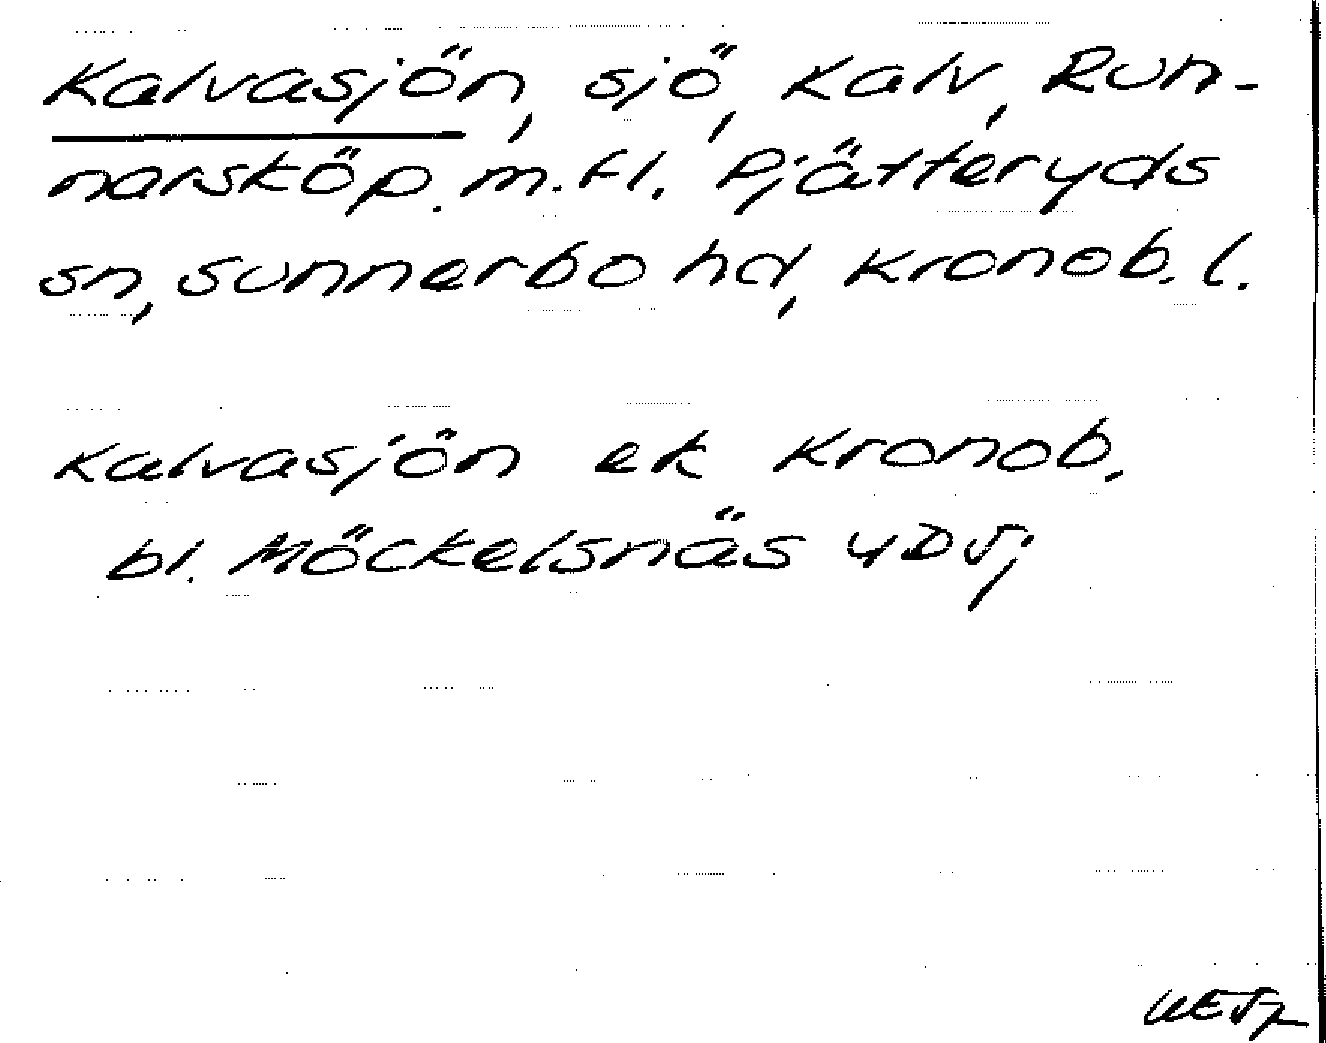 Kalvasjön, sjö, Kalv, Run-
narsköp. m.fl. Pjätteryds
sn, Sunnerbo hd, Kronob. l.
Kalvasjön ek Kronob.
bl. Möckelsnäs 4D